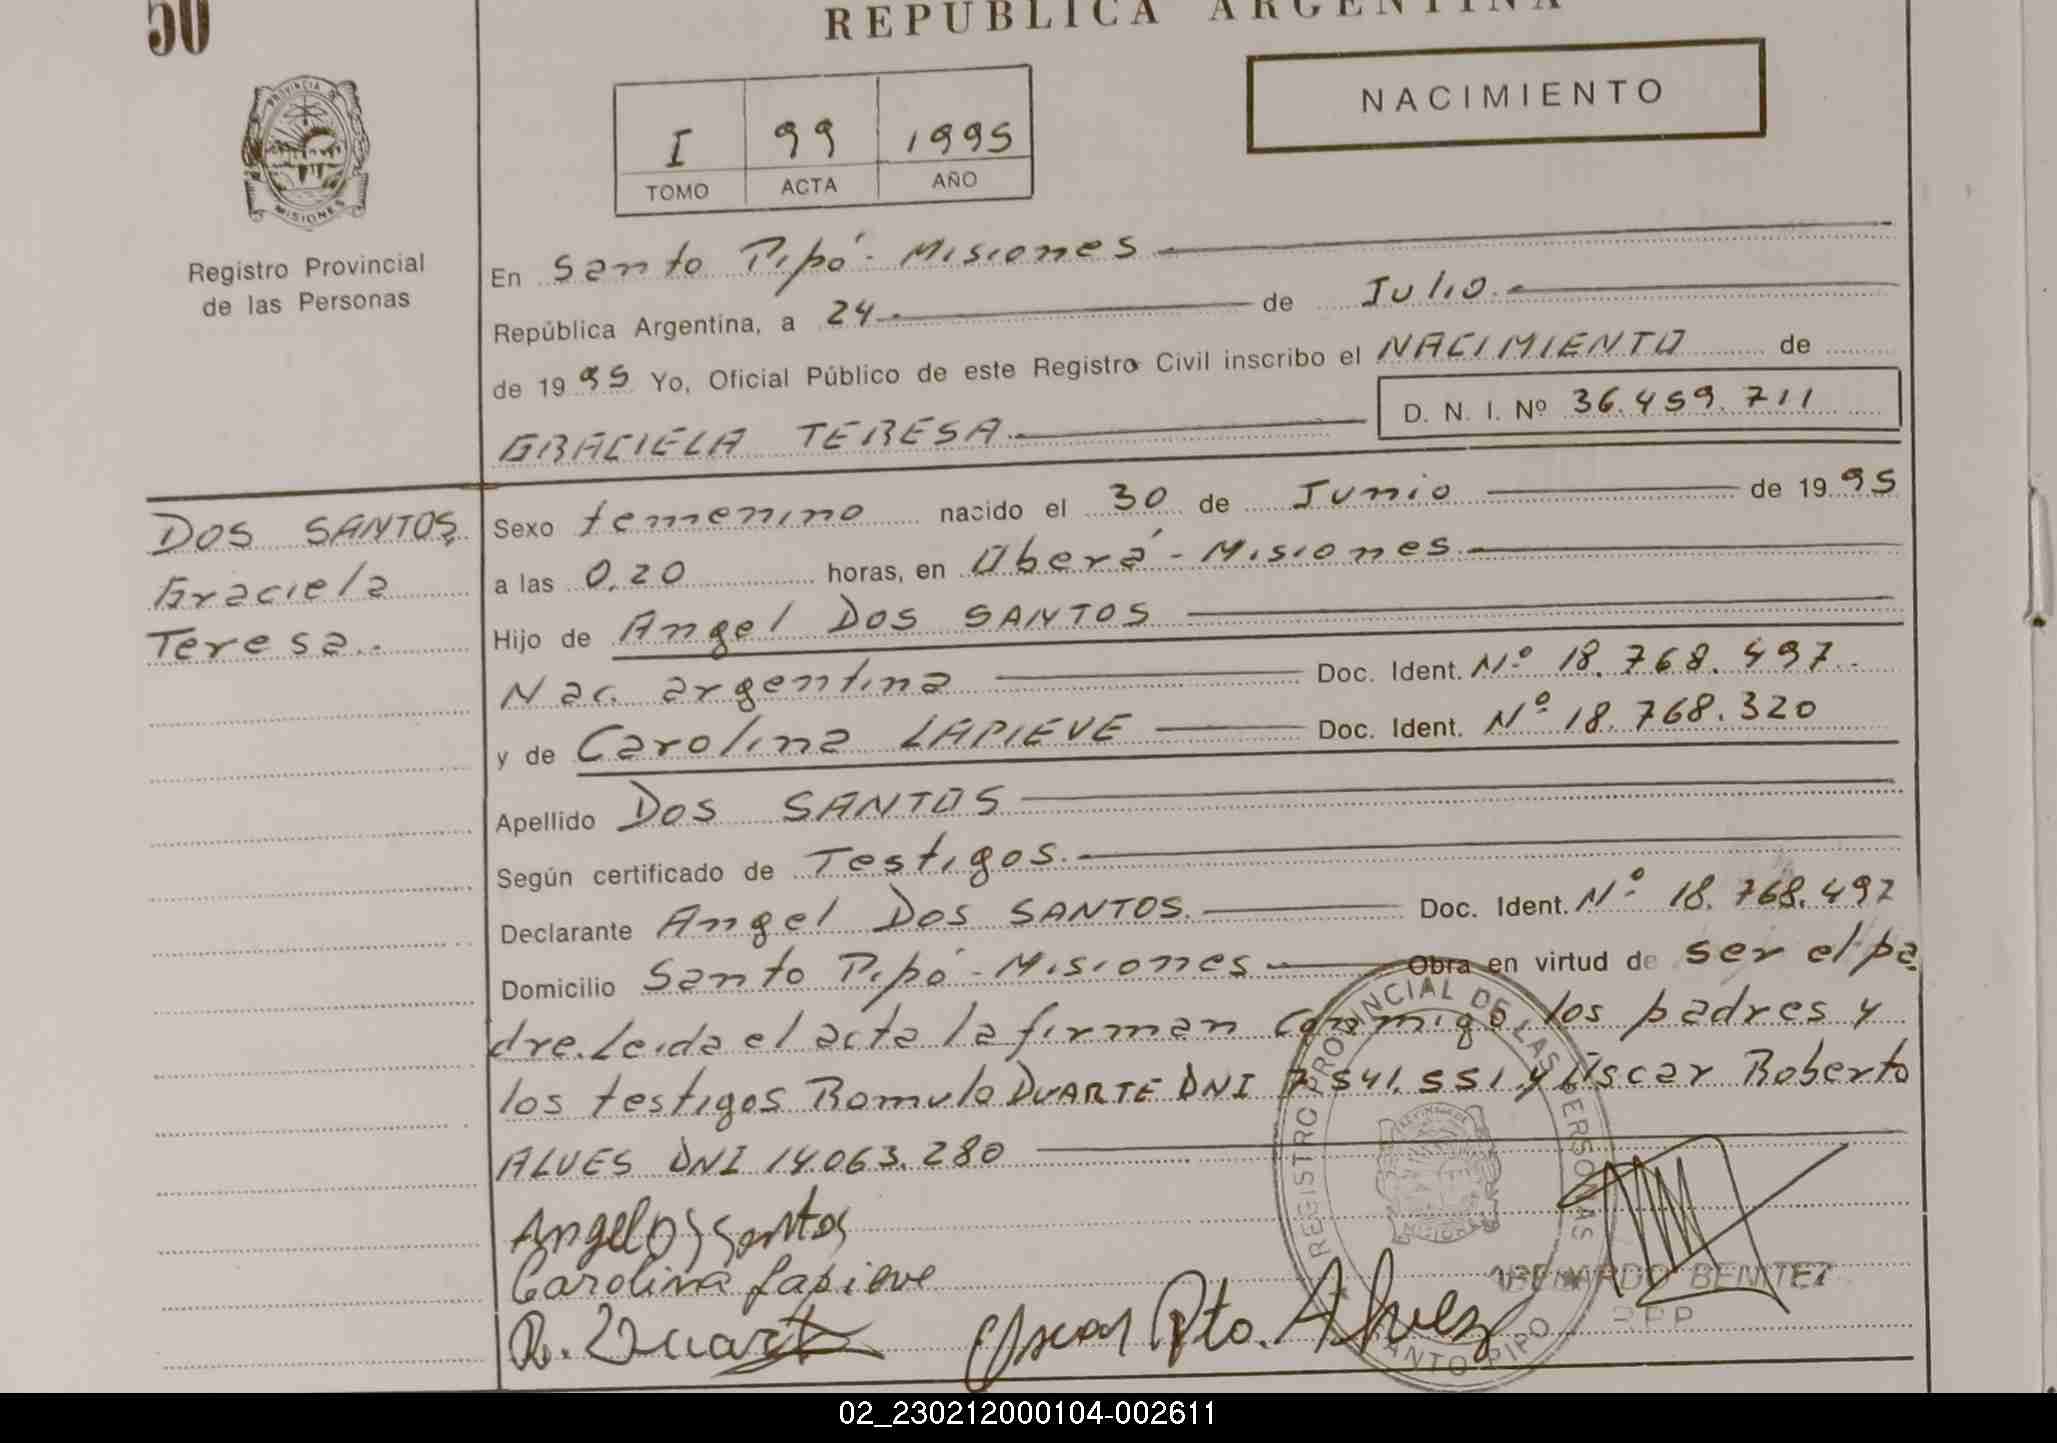 50
REPUBLICA ARGENTINA
NACIMIENTO
I 99 1995
TOMO ACTA AÑO
PROVINCIA DE
MISIONES
Registro Provincial
de las Personas
En Santo Pipó - Misiones
República Argentina, a 24 de Julio.
de 1995 Yo, Oficial Público de este Registro Civil inscribo el NACIMIENTO de
GRACIELA TERESA. D. N. I. Nº 36.459.711
DOS SANTOS
Graciela
Teresa..
Sexo femenino nacido el 30 de Junio de 1995
a las 0.20 horas, en Oberá - Misiones.
Hijo de Angel DOS SANTOS
Nac. argentina Doc. Ident. Nº 18.768.497.
y de Carolina LAPIEVE Doc. Ident. Nº 18.768.320
Apellido DOS SANTOS
Según certificado de Testigos.
Declarante Angel DOS SANTOS. Doc. Ident. Nº 18.768.497
Domicilio Santo Pipó - Misiones Obra en virtud de ser el pa
dre. Leida el acta la firman conmigo, los padres y
los testigos Romulo DUARTE DNI 7.541.551 y Oscar Roberto
ALVES DNI 14.063.280
Angel D S Santos
Carolina Lapieve
R. Duarte
Oscar Rto. Alvez
REGISTRO PROVINCIAL DE LAS PERSONAS
SANTO PIPO
MISIONES
BENITEZ
02_230212000104-002611